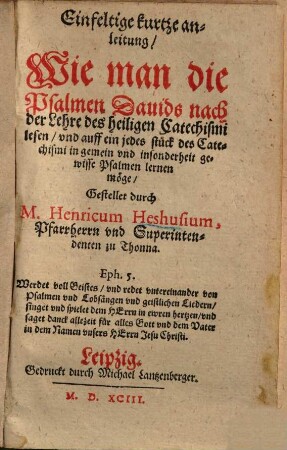 Einfeltige kurtze an-
leitung/
Wie man die
Psalmen Dauids nach
der Lehre des heiligen Catechismi
lesen/ vnd auff ein jedes stück des Cate-
chismi in gemein vnd insonderheit ge-
wisse Psalmen lernen
möge/
Gestellet durch
M. Henricum Heshusium,
Pfarrherrn vnd Superinten-
denten zu Thonna.
Eph. 5.
Werdet voll Geistes/ vnd redet vntereinander von
Psalmen vnd Lobsängen vnd geistlichen Liedern/
singet vnd spielet dem HErrn in ewren hertzen/ vnd
saget danck allezeit für alles Gott vnd dem Vater
in dem Namen vnsers HErrn Jesu Christi.
Leipzig.
Gedruckt durch Michael Lantzenberger.
M. D. XCIII.